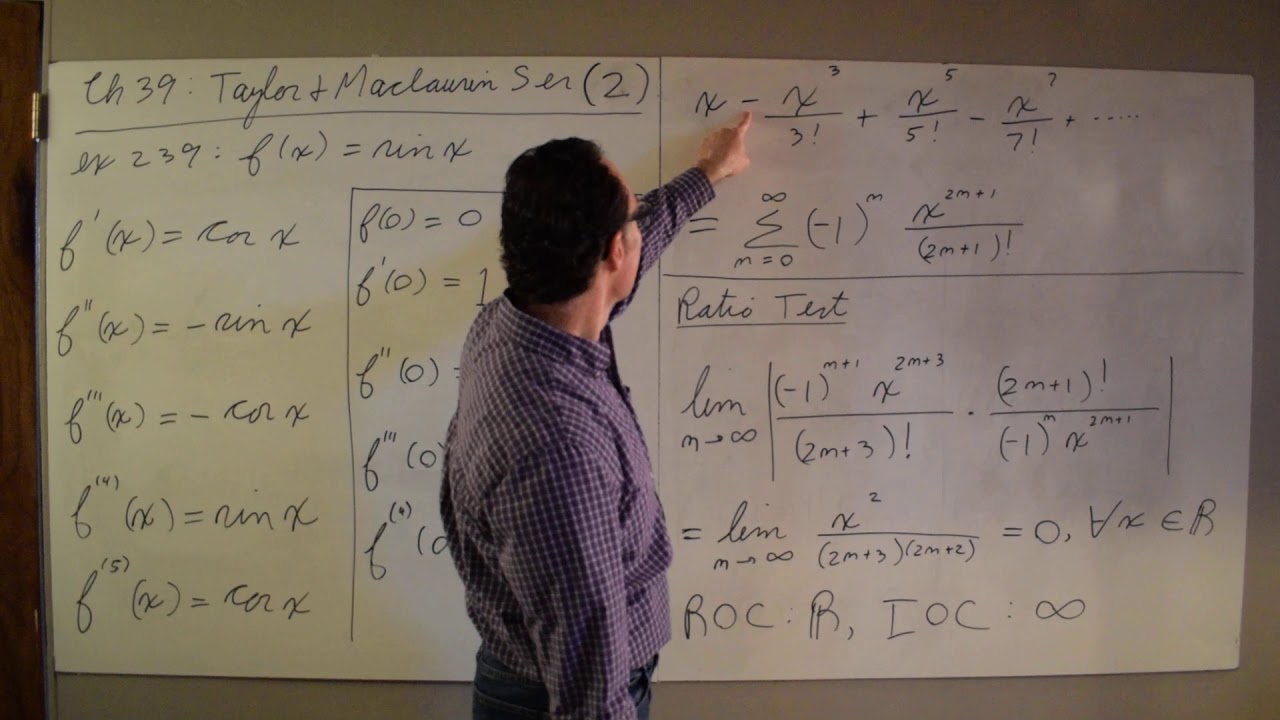 Ch 39: Taylor & Maclaurin Ser (2)
ex 239: f(x) = sin x
f'(x) = cos x
f''(x) = - sin x
f'''(x) = - cos x
f⁽⁴⁾(x) = sin x
f⁽⁵⁾(x) = cos x
f(0) = 0
f'(0) = 1
f''(0) =
f'''(0)
f⁽⁴⁾(0
x - x³/3! + x⁵/5! - x⁷/7! + .....
= ∑_{n=0}^{∞} (-1)ⁿ x^{2n+1}/(2n+1)!
Ratio Test
lim_{n→∞} | (-1)^{n+1} x^{2n+3}/(2n+3)! · (2n+1)!/((-1)ⁿ x^{2n+1}) |
= lim_{n→∞} x²/((2n+3)(2n+2)) = 0, ∀x ∈ ℝ
ROC: ℝ, IOC: ∞